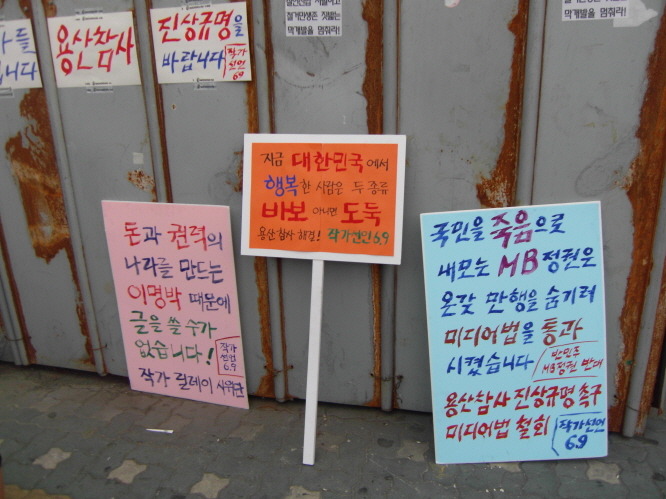 들
니다
용산참사
진상규명을
바랍니다
작가
선언
6.9
철거민
막개발을 멈춰라!
막개발을 멈춰라!
지금 대한민국에서
행복한 사람은 두 종류
바보 아니면 도둑
용산참사 해결! 작가선언 6.9
돈과 권력의
나라를 만드는
이명박 때문에
글을 쓸 수가
없습니다!
작가
선언
6.9
작가 릴레이 시위단
국민을 죽음으로
내모는 MB정권은
온갖 만행을 숨기려
미디어법을 통과
시켰습니다
반민주
MB정권 반대
용산참사 진상규명 촉구
미디어법 철회
작가선언
6.9